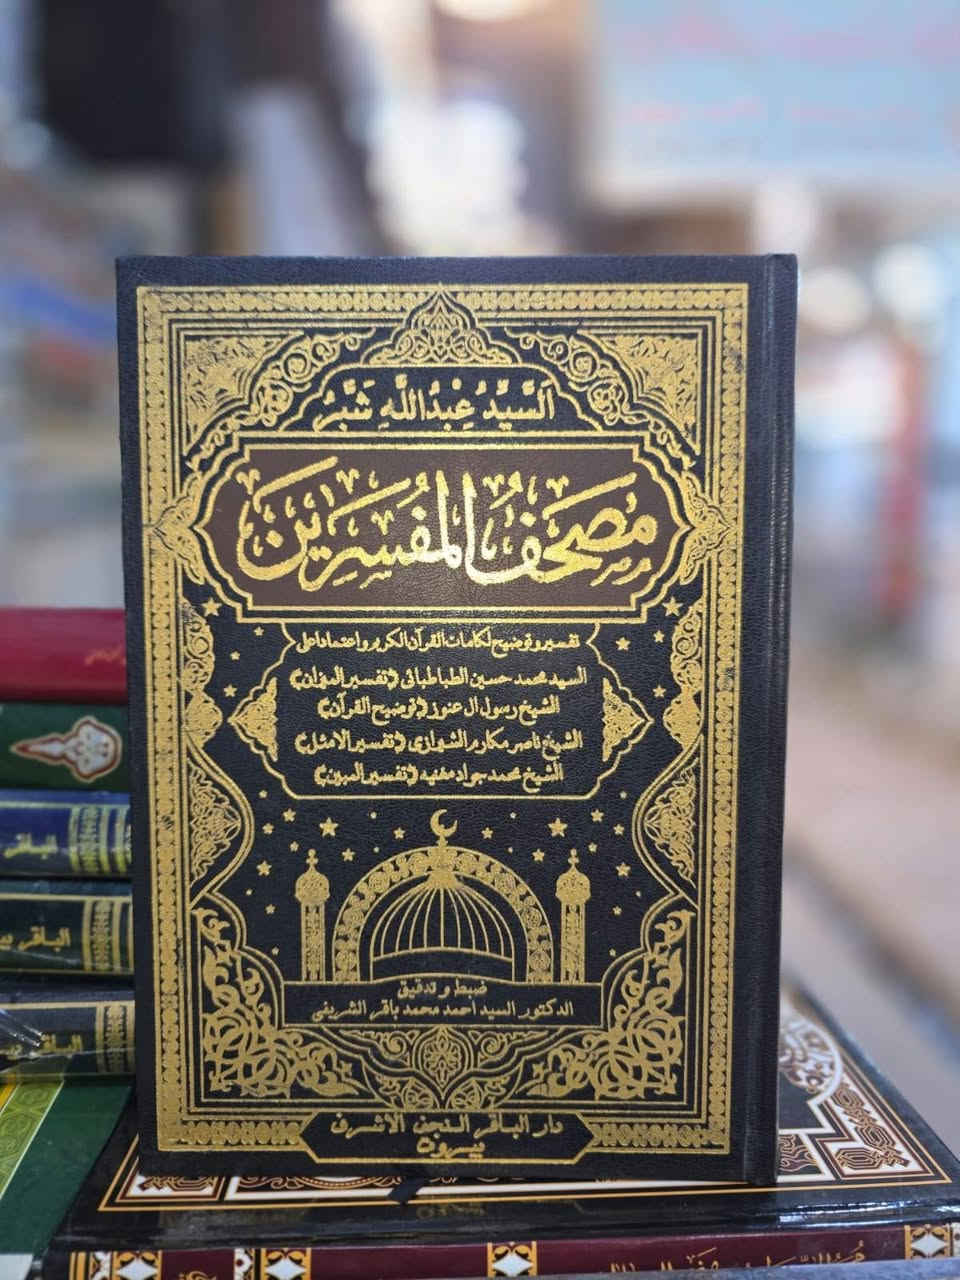 اَلسَّيِّدُ عَبْدُاللَّهِ شُبَّرْ
مُصْحَفُ المُفَسِّرِينَ
تفسير و توضيح لكلمات القرآن الكريم و اعتمادا على
السيد محمد حسين الطباطبائى (تفسير الميزان)
الشيخ رسول ال عنوز (توضيح القرآن)
الشيخ ناصر مكارم الشيرازي (تفسير الامثل)
الشيخ محمد جواد مغنيه (تفسير المبين)
ضبط و تدقيق
الدكتور السيد احمد محمد باقر الشريفي
دار الباقر النجف الاشرف
بيروت
الباقر
الباقر
الباقر